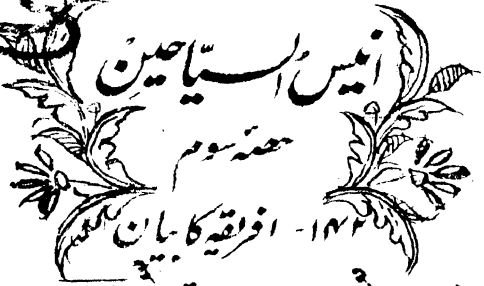 انیس السیّاحین
حصّہ سوم
۱۴۲- افریقہ کا بیان